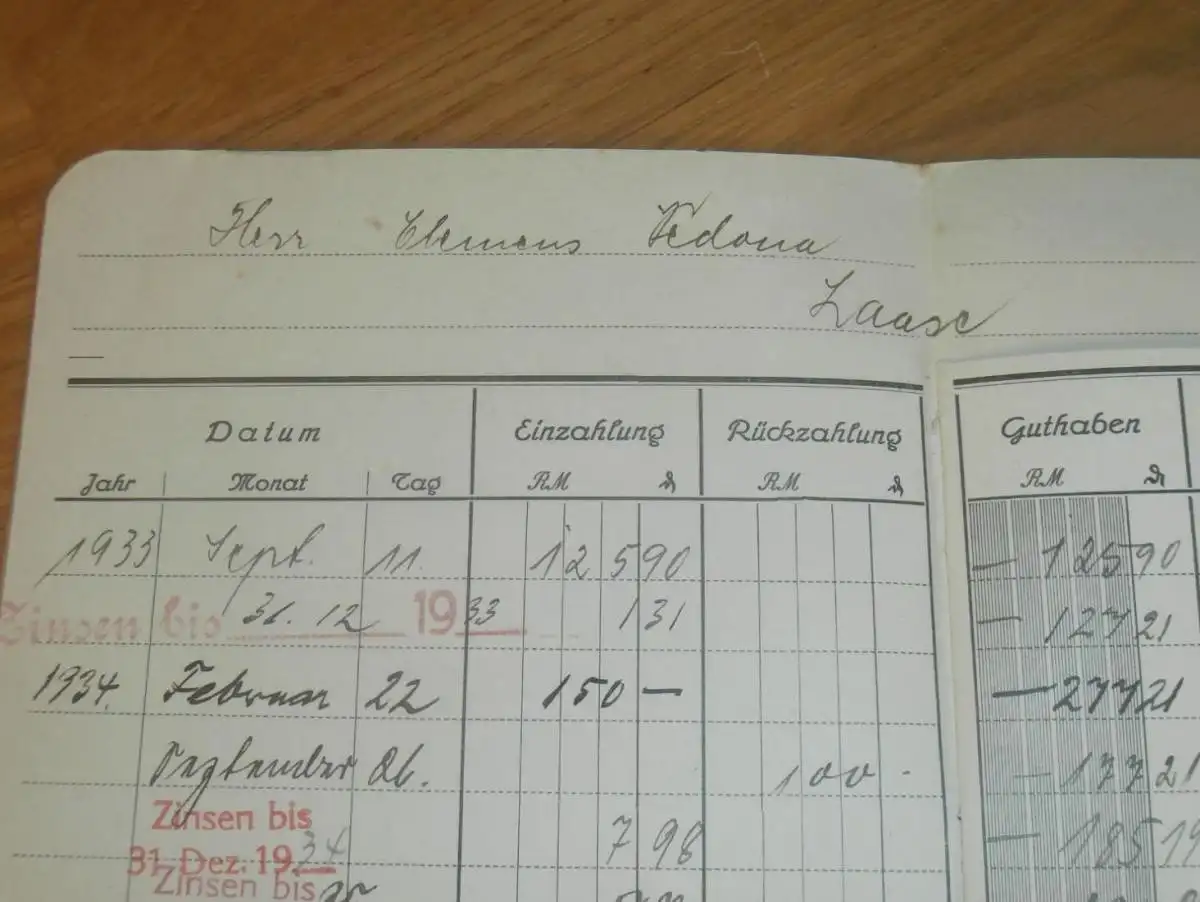 Herr Clemens Vedova
Laase
Datum Einzahlung Rückzahlung Guthaben
Jahr Monat Tag RM ₰ RM ₰ RM ₰
1933 Sept. 11. 125 90 — 125 90
Zinsen bis 31. 12 1933 1 31 — 127 21
1934. Februar 22 150 — — 277 21
September 26. 100 - — 177 21
Zinsen bis
31. Dez. 1934 7 98 — 185 19
Zinsen bis